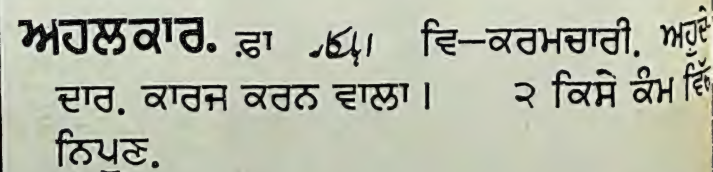 ਅਹਲਕਾਰ. ਫ਼ਾ اہلکار ਵਿ—ਕਰਮਚਾਰੀ. ਅਹੁਦੇ
ਦਾਰ. ਕਾਰਜ ਕਰਨ ਵਾਲਾ। ੨ ਕਿਸੇ ਕੰਮ ਵਿੱਚ
ਨਿਪੁਣ.